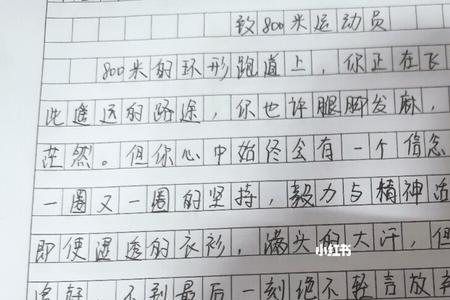 致800米运动员
800米的环形跑道上，你正在飞
此遥远的路途，你也许腿脚发麻，
茫然。但你心中始终会有一个信念
一圈又一圈的坚持，毅力与精神
即使湿透的衣衫，满头的大汗，但
小红书
不到最后一刻绝不轻言放弃